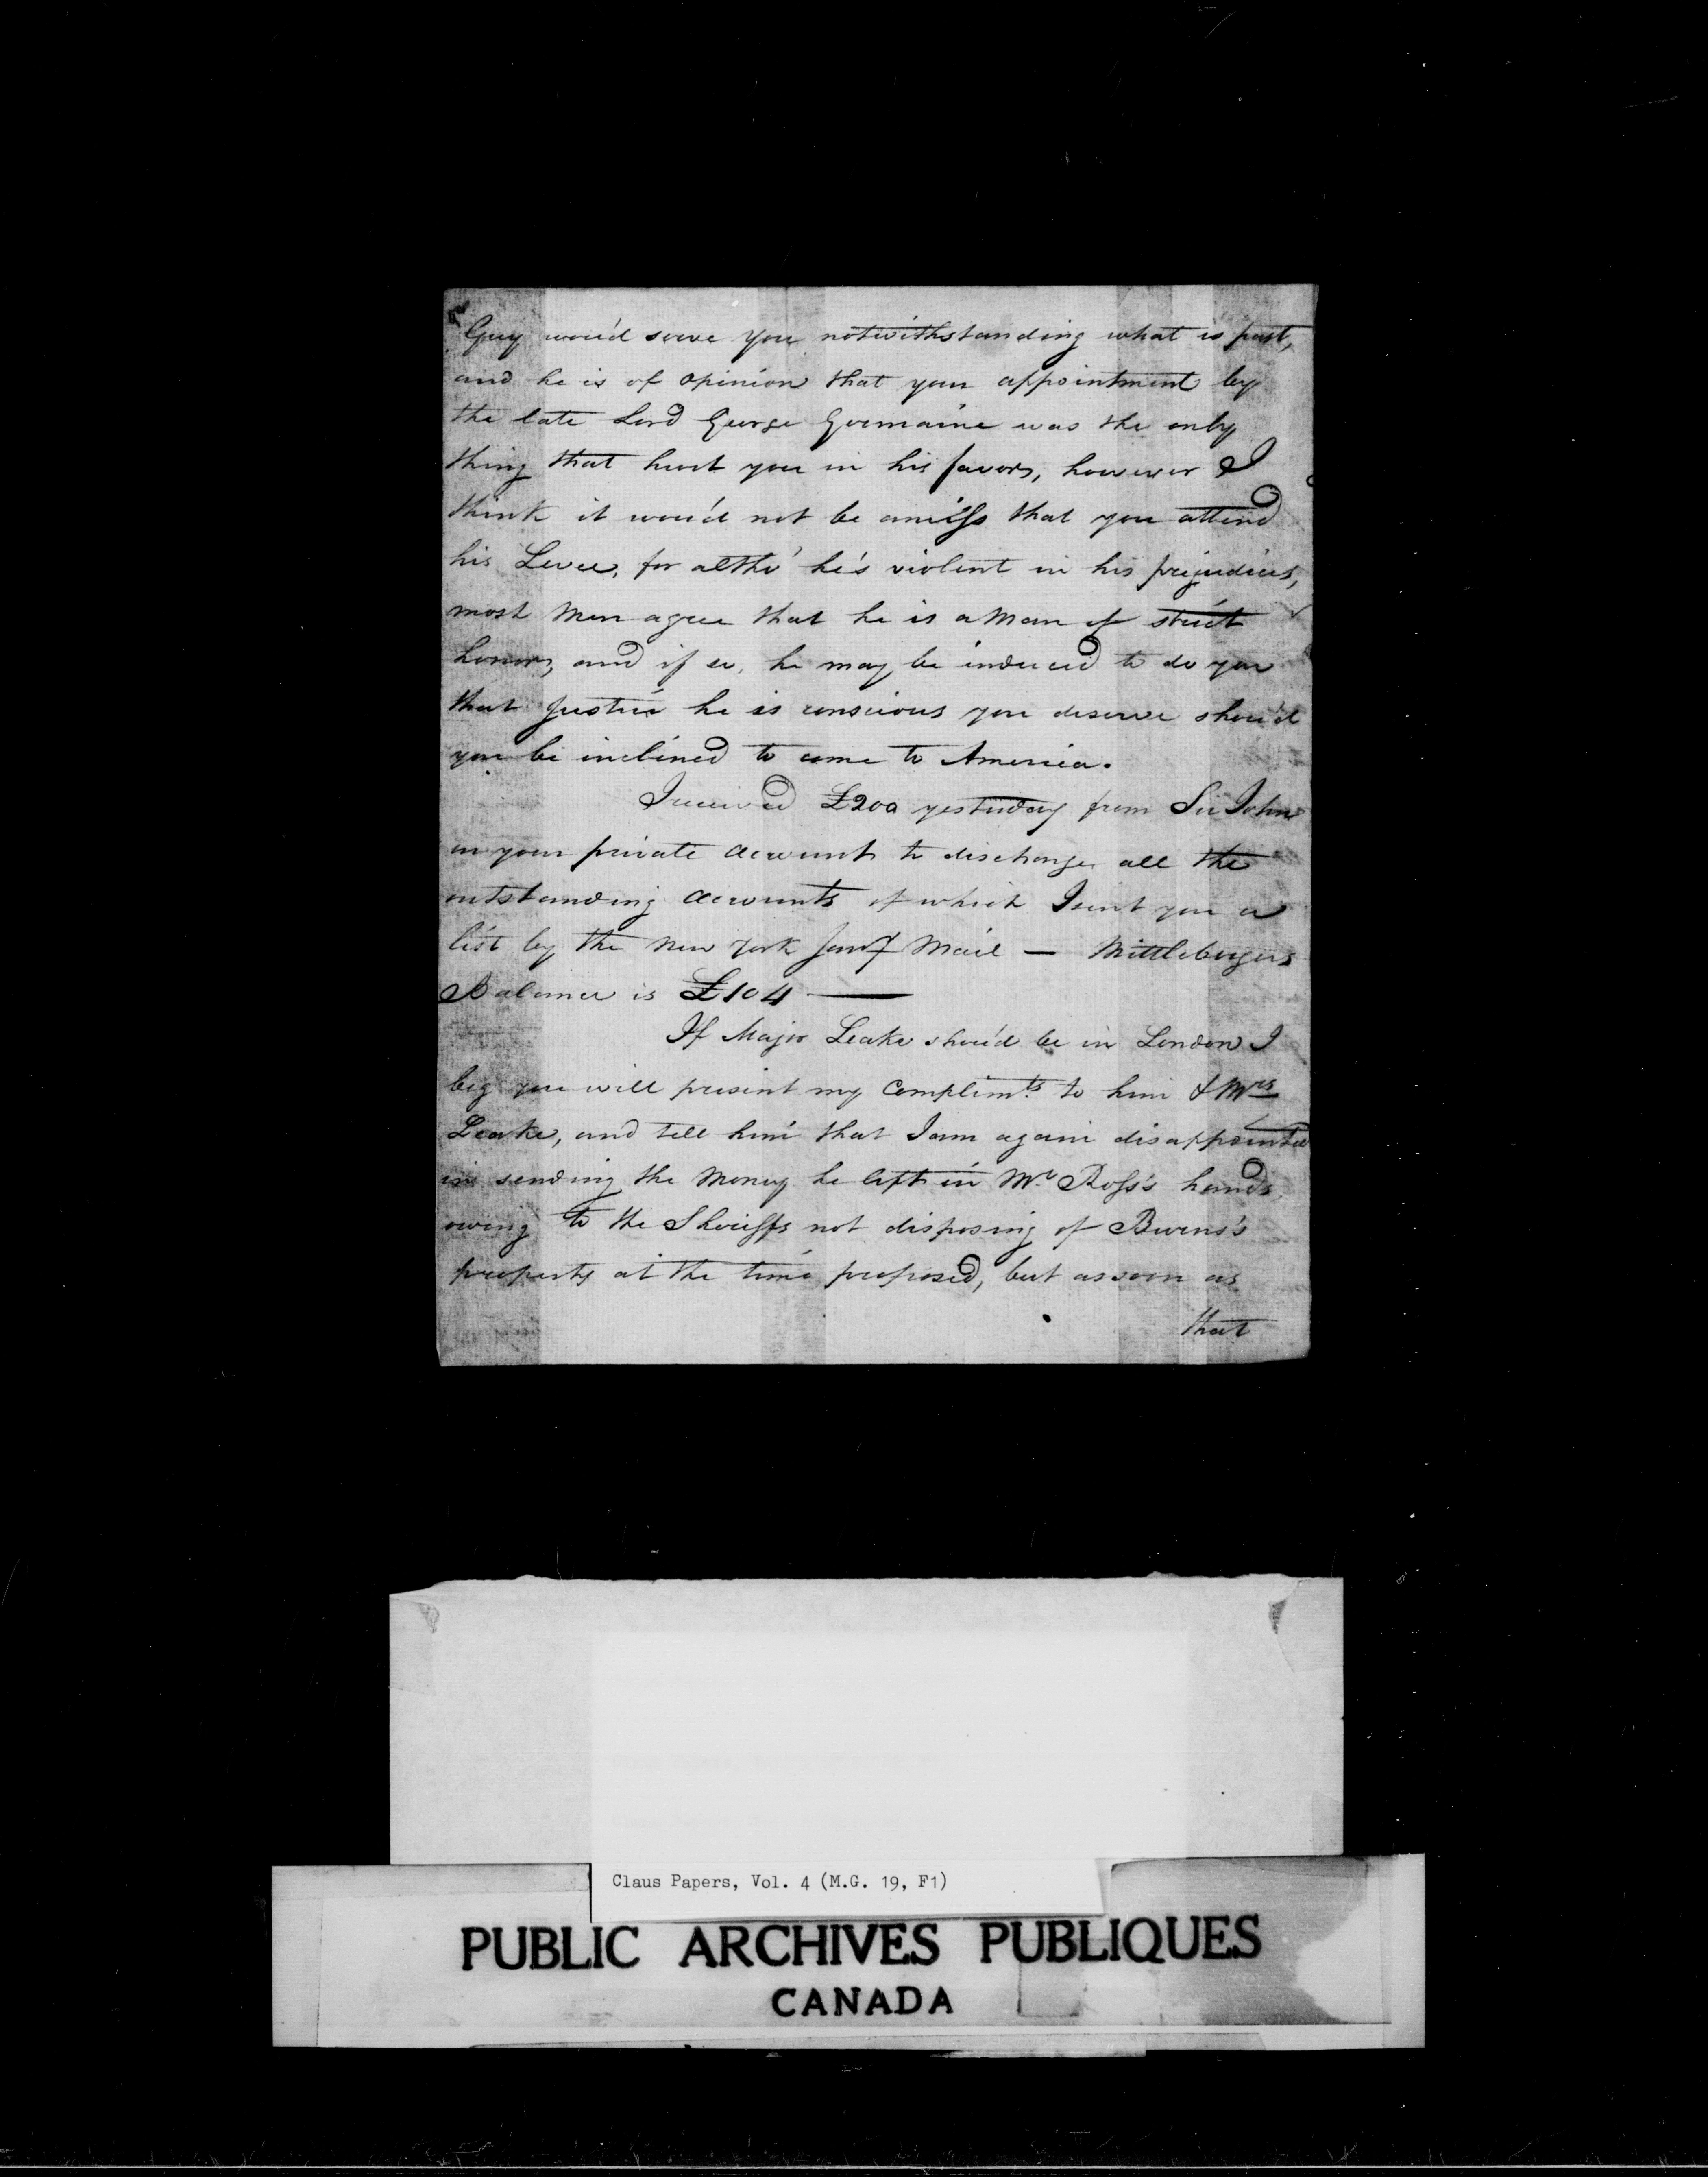 Guy wou'd serve you notwithstanding what is past,
and he is of opinion that your appointment by
the late Lord George Germaine was the only
thing that hurt you in his favor, however I
think it wou'd not be amiss that you attend
his Levee, for altho' he's violent in his prejudices,
most Men agree that he is a Man of strict
honor, and if so, he may be induced to do you
that Justice he is conscious you deserve shou'd
you be inclined to come to America.
I received £200 yesterday from Sir John
on your private account to discharge all the
outstanding accounts of which I sent you a
list by the New York Jany Mail — Mittlebergers
Balance is £104 —
If Major Leake shou'd be in London I
beg you will present my Complimts. to him & Mrs
Leake, and tell him that I am again disappointed
in sending the Money he left in Mr. Ross's hands,
owing to the Sheriffs not disposing of Burns's
property at the time proposed, but as soon as
that
Claus Papers, Vol. 4 (M.G. 19, F1)
PUBLIC ARCHIVES PUBLIQUES
CANADA